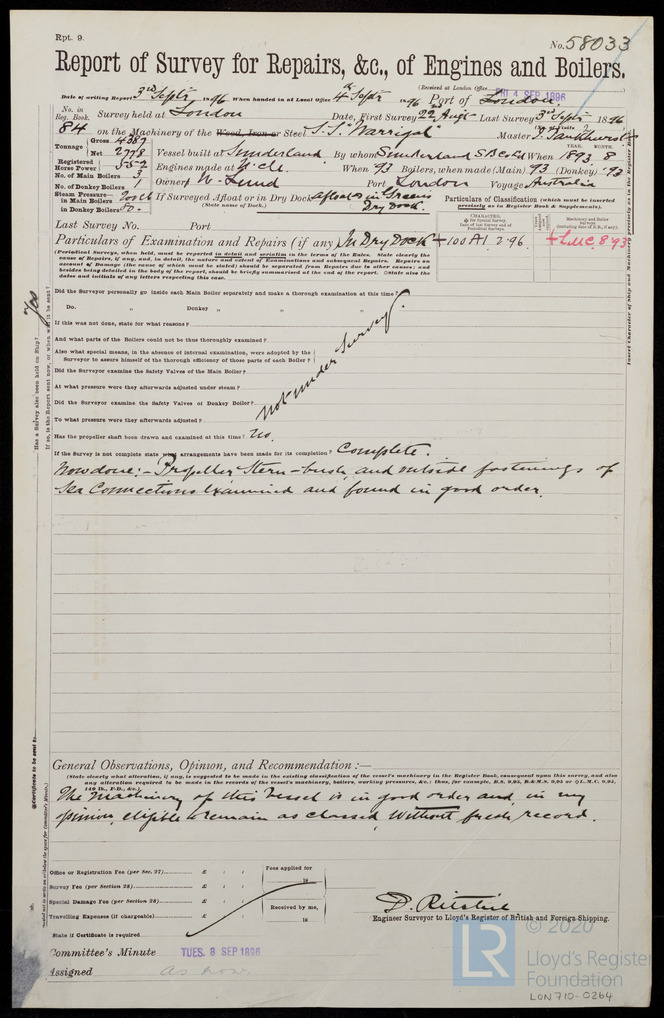 Rpt. 9.
No. 58033
Report of Survey for Repairs, &c., of Engines and Boilers.
(Received at London Office FRI 4 SEP 1896
Date of writing Report 3rd Septr 1896 When handed in at Local Office 4th Septr 1896 Port of London
No. in Reg. Book. Survey held at London Date, First Survey 22nd Augt Last Survey 3rd Septr 1896
84 on the Machinery of the Wood, Iron or Steel S.S. "Warrigal" Master
Tonnage Gross 4387
Net 2778 Vessel built at Sunderland By whom Sunderland S B Co Ld When 1893 YEAR. MONTH. 8
Registered Horse Power 552 Engines made at When 93 Boilers, when made (Main) 93 (Donkey) 93
No. of Main Boilers 3
No. of Donkey Boilers 1 Owners W. Lund Port London Voyage Australia
Steam Pressure in Main Boilers If Surveyed Afloat or in Dry Dock afloat & in Greens Dry Dock.
in Donkey Boilers (State name of Dock.)
Particulars of Classification (which must be inserted precisely as in Register Book & Supplements).
Last Survey No. Port
Particulars of Examination and Repairs (if any) In Dry Dock + 100 A1. 2.96. + L.M.C. 8.93
(Periodical Surveys, when held, must be reported in detail and seriatim in the terms of the Rules. State clearly the
cause of Repairs, if any, and, in detail, the nature and extent of Examinations and subsequent Repairs. Repairs on
account of Damage (the cause of which must be stated) should be separated from Repairs due to other causes; and
besides being detailed in the body of the report, should be briefly summarised at the end of the report. State also the
dates and initials of any letters respecting this case.
Did the Surveyor personally go inside each Main Boiler separately and make a thorough examination at this time?
Do. " Donkey " " "
If this was not done, state for what reasons?
And what parts of the Boilers could not be thoroughly examined?
Also what special means, in the absence of internal examination, were adopted by the
Surveyor to assure himself of the thorough efficiency of those parts of each Boiler?
Did the Surveyor examine the Safety Valves of the Main Boiler?
At what pressure were they afterwards adjusted under steam?
Did the Surveyor examine the Safety Valves of Donkey Boiler?
To what pressure were they afterwards adjusted?
not under Survey.
Has the propeller shaft been drawn and examined at this time? No.
If the Survey is not complete state what arrangements have been made for its completion? Complete.
Now done:- Propeller Stern-bush, and outside fastenings of
Sea Connections examined and found in good order.
General Observations, Opinion, and Recommendation:—
(State clearly what alteration, if any, is suggested to be made in the existing classification of the vessel's machinery in the Register Book, consequent upon this survey, and also
any alteration required to be made in the records of the vessel's machinery, boilers, working pressures, &c.; thus, for example, B.S. 9,95, B.&M.S. 9,95 or L.M.C. 9,95,
140 lb., F.D., &c.)
The Machinery of this Vessel is in good order and, in my
opinion, eligible to remain as classed, Without fresh record.
Office or Registration Fee (per Sec. 27) £ : :
Survey Fee (per Section 28) £ : :
Special Damage Fee (per Section 28) £ : :
Travelling Expenses (if chargeable) £ : :
Fees applied for
18
Received by me,
18
State if Certificate is required
D. Ritchie
Engineer Surveyor to Lloyd's Register of British and Foreign Shipping.
Committee's Minute TUES. 8 SEP 1896
Assigned as now
© 2020
LR
Lloyd's Register
Foundation
LON710-0264